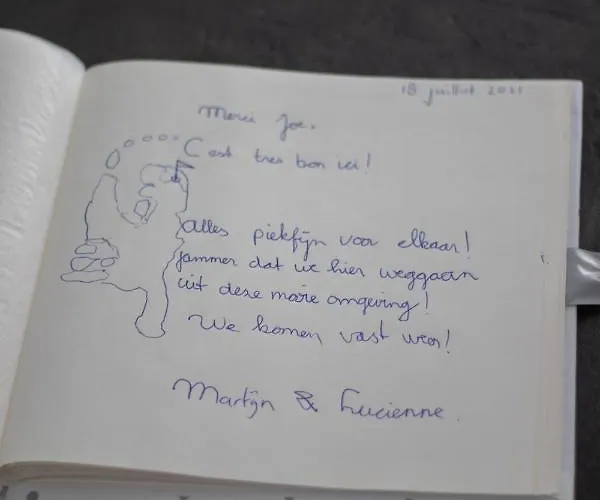 18 juillet 2021
Merci Joe.
C'est tres bon ici!
Alles piekfijn voor elkaar!
Jammer dat we hier weggaan
uit deze mooie omgeving!
We komen vast weer!
Martijn & Lucienne.